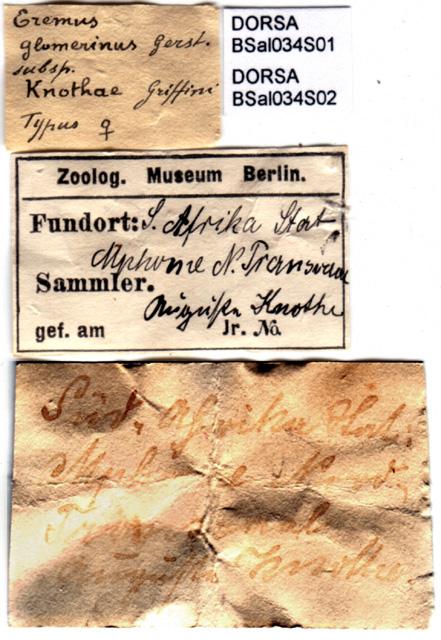 Eremus
glomerinus Gerst.
subsp.
Knothae Griffini
Typus ♀
DORSA
BSal034S01
DORSA
BSal034S02
Zoolog. Museum Berlin.
Fundort: S. Afrika Stat
Mphome N. Transvaal
Sammler.
Auguste Knothe
gef. am Jr. No.
Süd. Afrika Stat.
Nord.
Knothe